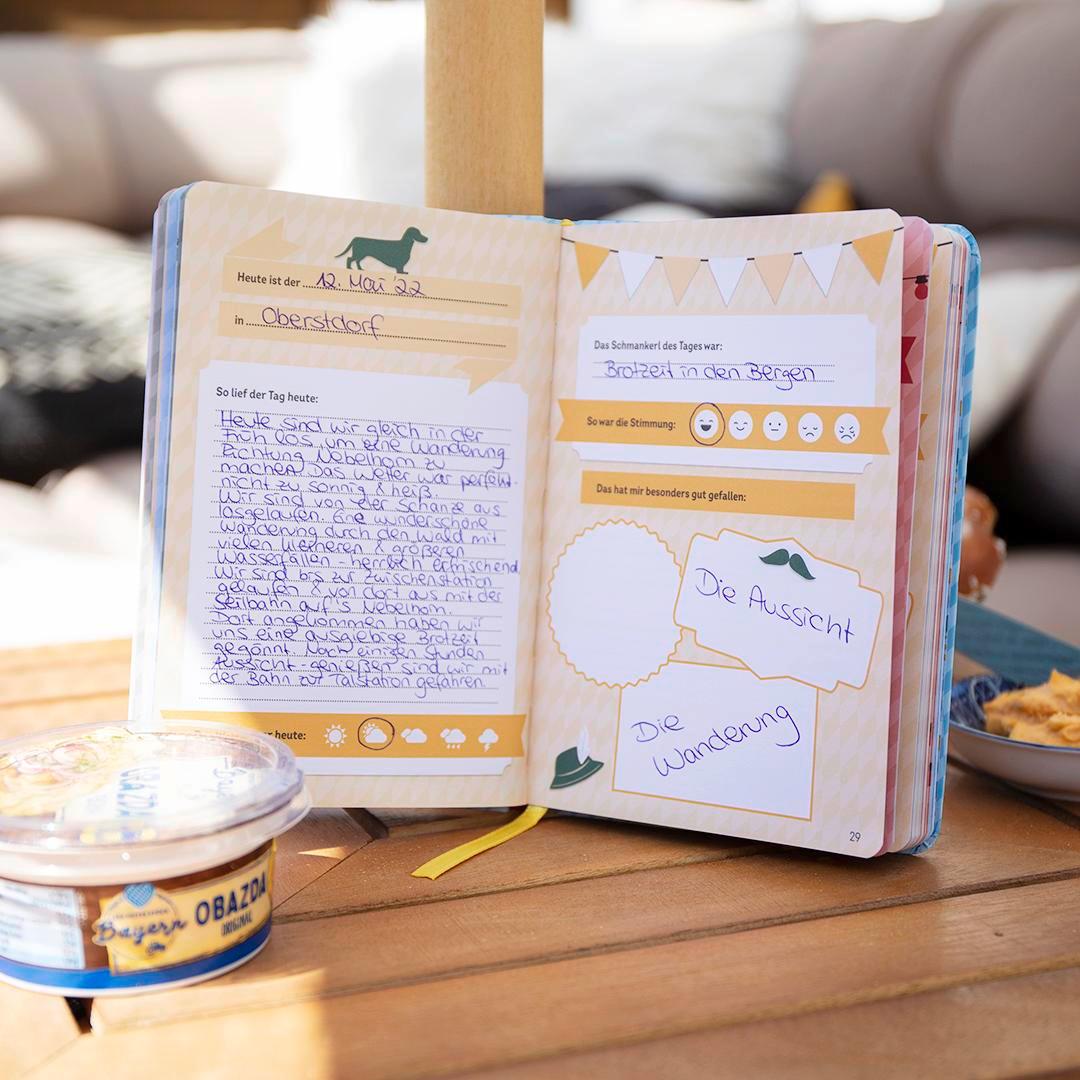 Heute ist der 12. Mai '22
in Oberstdorf
So lief der Tag heute:
Heute sind wir gleich in der
Früh los, um eine Wanderung
Richtung Nebelhorn zu
machen. Das Wetter war perfekt -
nicht zu sonnig & heiß.
Wir sind von der Schanze aus
losgelaufen. Eine wunderschöne
Wanderung durch den Wald mit
vielen kleineren & größeren
Wasserfällen - herrlich erfrischend
Wir sind bis zur Zwischenstation
gelaufen & von dort aus mit der
Seilbahn auf's Nebelhorn.
Dort angekommen haben wir
uns eine ausgiebige Brotzeit
gegönnt. Nach einigen Stunden
Aussicht-genießen sind wir mit
der Bahn zur Talstation gefahren.
r heute:
Das Schmankerl des Tages war:
Brotzeit in den Bergen
So war die Stimmung:
Das hat mir besonders gut gefallen:
Die Aussicht
Die
Wanderung
29
OBAZDA
Bayern
OBAZDA
ORIGINAL